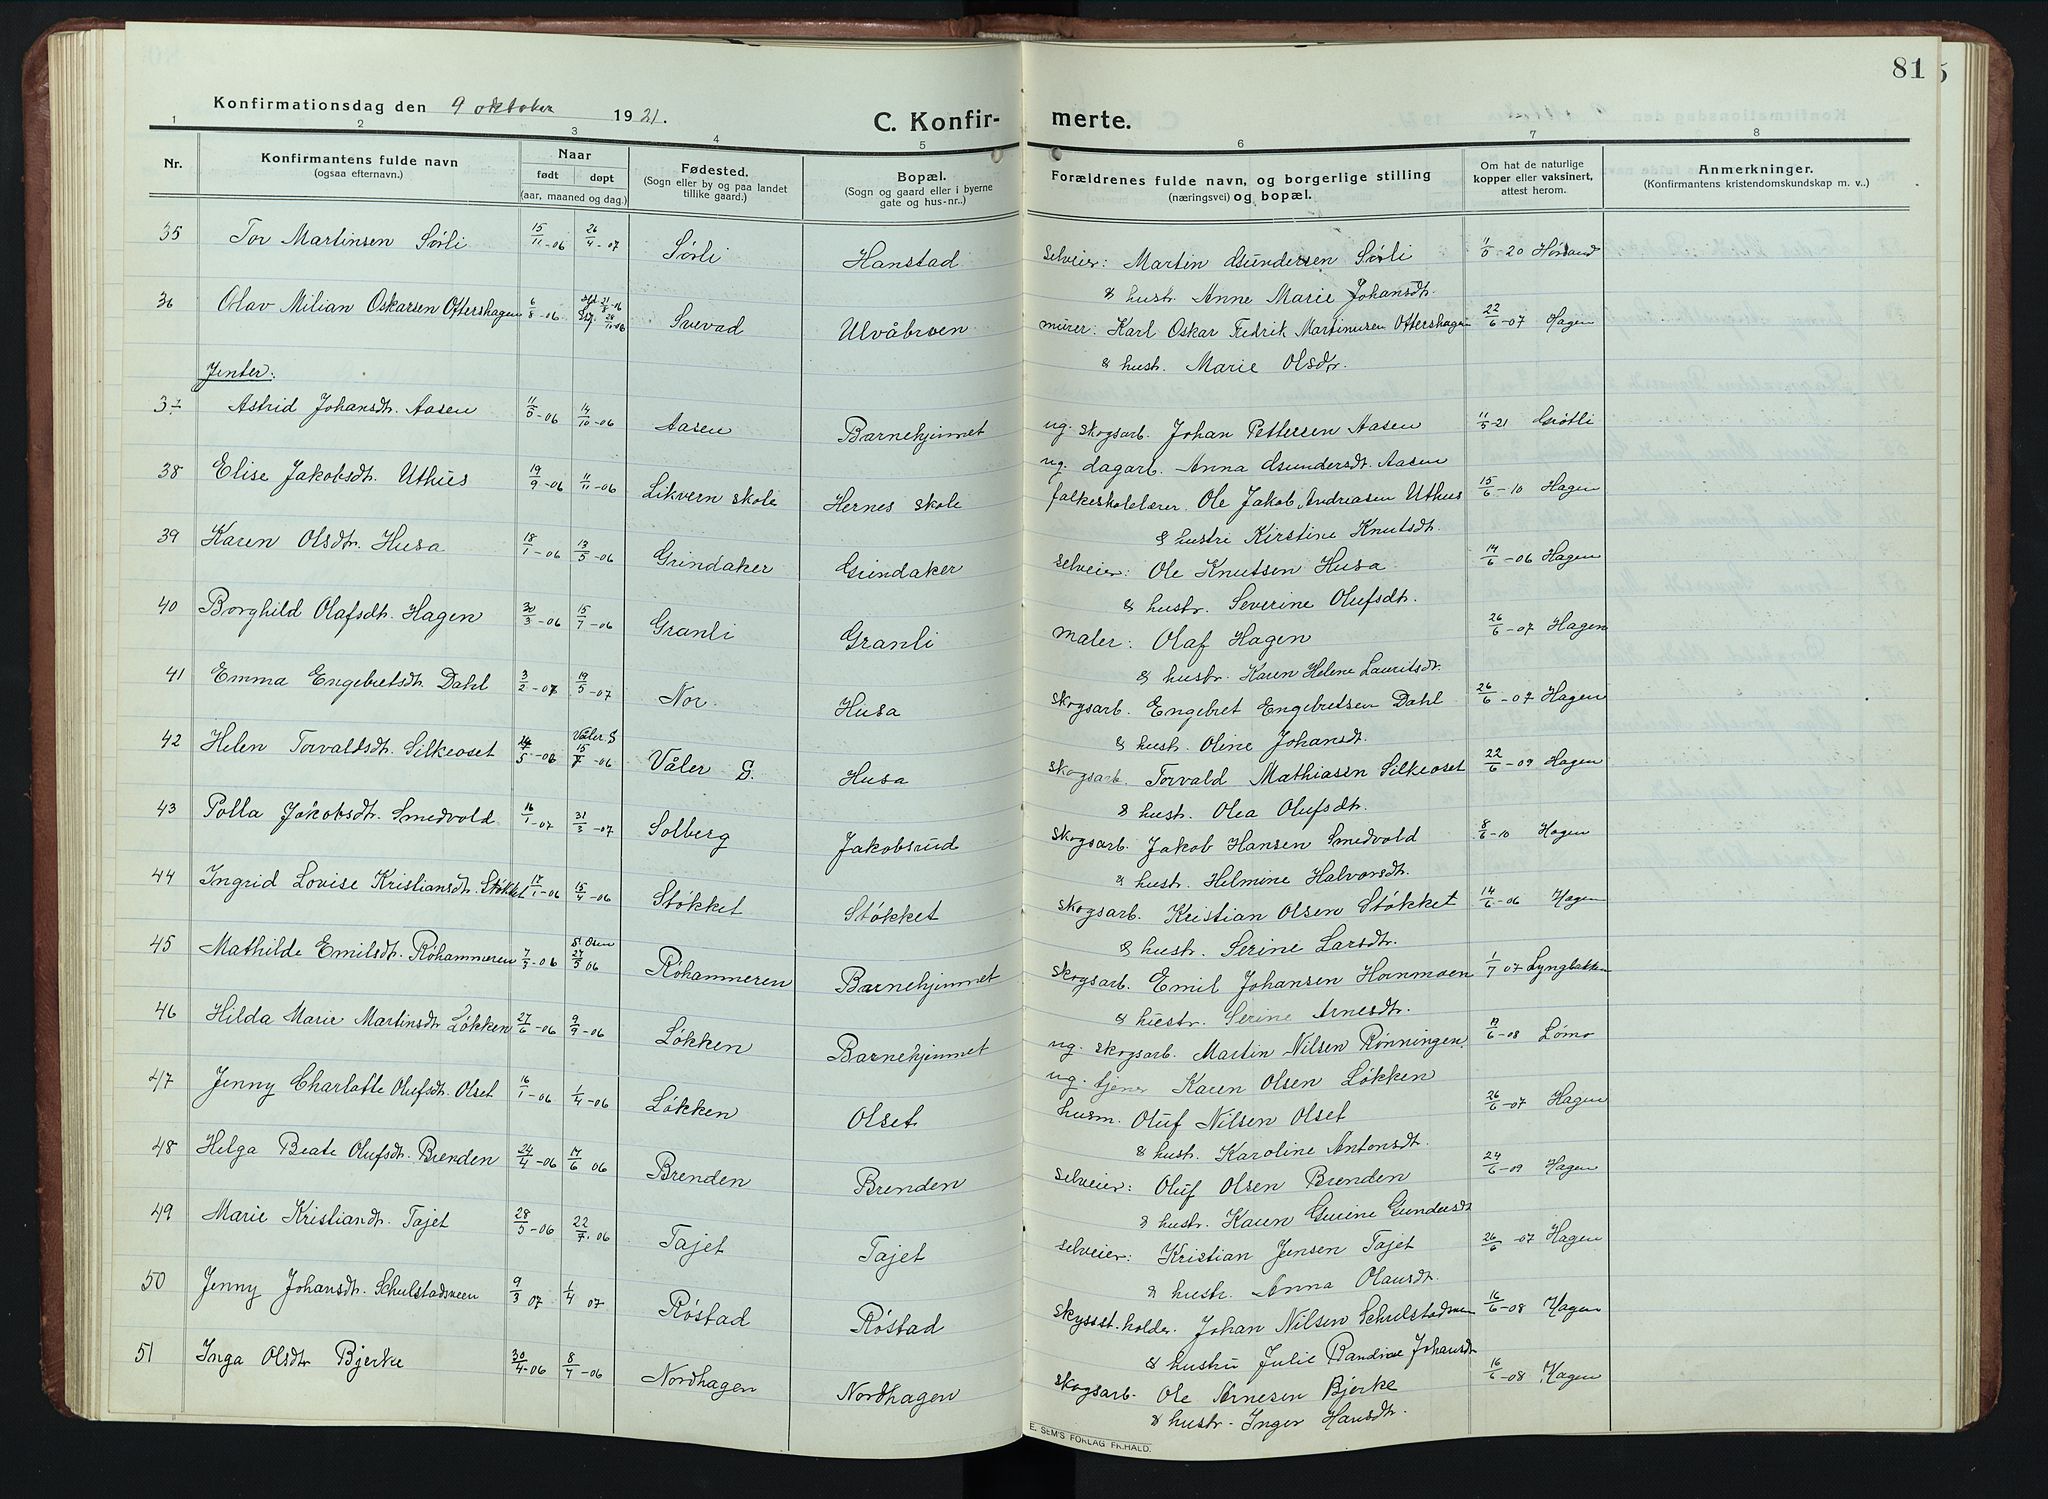 81
5
Konfirmationsdag den 9 oktober 1921.
C. Konfirmerte.
1 2 3 4 5 6 7 8
Nr.
Konfirmantens fulde navn
(ogsaa efternavn.)
Naar
født døpt
(aar, maaned og dag.)
Fødested.
(Sogn eller by og paa landet
tillike gaard.)
Bopæl.
(Sogn og gaard eller i byerne
gate og hus-nr..)
Forældrenes fulde navn, og borgerlige stilling
(næringsvei) og bopæl.
Om hat de naturlige
kopper eller vaksinert,
attest herom.
Anmerkninger.
(Konfirmantens kristendomskundskap m. v..)
35 Tor Martinsen Sørli 15/11-06 26/4-07 Sørli Hanstad selveier: Martin Gundersen Sørli 20
& hustr. Anne Marie Johansdt.
36 Olav Milian Oskarsen Oftershagen 6/8-06 Svevad Ulvåbroen murer: Karl Oskar Fredrik Martinusen Oftershagen 22/6-07 Hagen
& hustr. Marie Olsdtr.
Jenter:
37 Astrid Johansdt. Aasen 11/5-06 14/10-06 Aasen Barnehjemmet ug. skogsarb. Johan Pettersen Aasen 11/5-21 Grøtli
ug. dagarb. Anna Gundersdt. Aasen
38 Elise Jakobsdt. Uthus 19/9-06 11/11-06 Likvern skole Hernes skole folkeskolelærer Ole Jakob Andreasen Uthus 15/6-10 Hagen
& hustri Kirstine Knutsdt.
39 Karen Olsdtr. Husa 18/1-06 13/5-06 Grindaker Grindaker selveier: Ole Knutsen Husa 14/6-06 Hagen
& hustr. Severine Olufsdt.
40 Borghild Olafsdt. Hagen 30/3-06 15/7-06 Granli Granli maler: Olaf Hagen 26/6-07 Hagen
& hustr. Karen Helene Lauritsdt.
41 Emma Engebretsdt. Dahl 3/2-07 19/5-07 Nor Husa skogsarb. Engebret Engebretsen Dahl 26/6-07 Hagen
& hustr. Oline Johansdt.
42 Helen Torvaldsdt. Silkeoset Våler S 15/7-06 Våler S. Husa skogsarb. Torvald Mathiasen Silkeoset 22/6-09 Hagen
& hustr. Olea Olufsdt.
43 Polla Jakobsdt. Smedvold 16/1-07 31/3-07 Solberg Jakobsrud skogsarb. Jakob Hansen Smedvold 8/6-10 Hagen
& hustr. Helmine Halvorsdt.
44 Ingrid Lovise Kristiansdt. Støkket 17/1-06 15/4-06 Støkket Støkket skogsarb. Kristian Olsen Støkket 14/6-06 Hagen
& hustr. Serine Larsdt.
45 Mathilde Emilsdt. Røhammeren 7/3-06 S. Osen 27/5 06 Røhammeren Barnehjemmet skogsarb. Emil Johansen Hornmoen 1/7 07 Lyngbakken
& hustr. Serine Arnesdt.
46 Hilda Marie Martinsdt. Løkken 27/6-06 9/9-06 Løkken Barnehjemmet ug. skogsarb. Martin Nilsen Rønningen 17/6-08 Lømo
ug. tjener Karen Olsen Løkken
47 Jenny Charlotte Olufsdt. Olset 16/1-06 1/4-06 Løkken Olset husm. Oluf Nilsen Olset 26/6-07 Hagen
& hustr. Karoline Antonsdt.
48 Helga Beate Olufsdt. Brenden 24/4-06 17/6 06 Brenden Brenden selveier: Oluf Olsen Brenden 24/6-09 Hagen
& hustr. Karen Gurine Gundersdt
49 Marie Kristiandt. Tajet 28/5-06 22/7-06 Tajet Tajet selveier: Kristian Jensen Tajet 26/6-07 Hagen
& hustr. Anna Olausdt.
50 Jenny Johansdt. Schulstadsveen 9/3 07 1/4 07 Røstad Røstad skysst.holder. Johan Nilsen Schulstadsveen 16/6-08 Hagen
& hustru Julie Bandine Johansdt
51 Inga Olsdtr Bjerke 30/4-06 8/7-06 Nordhagen Nordhagen skogsarb. Ole Arnesen Bjerke 16/6-08 Hagen
& hustr. Inger Hansdtr.
E. SEM'S FORLAG FR.HALD.